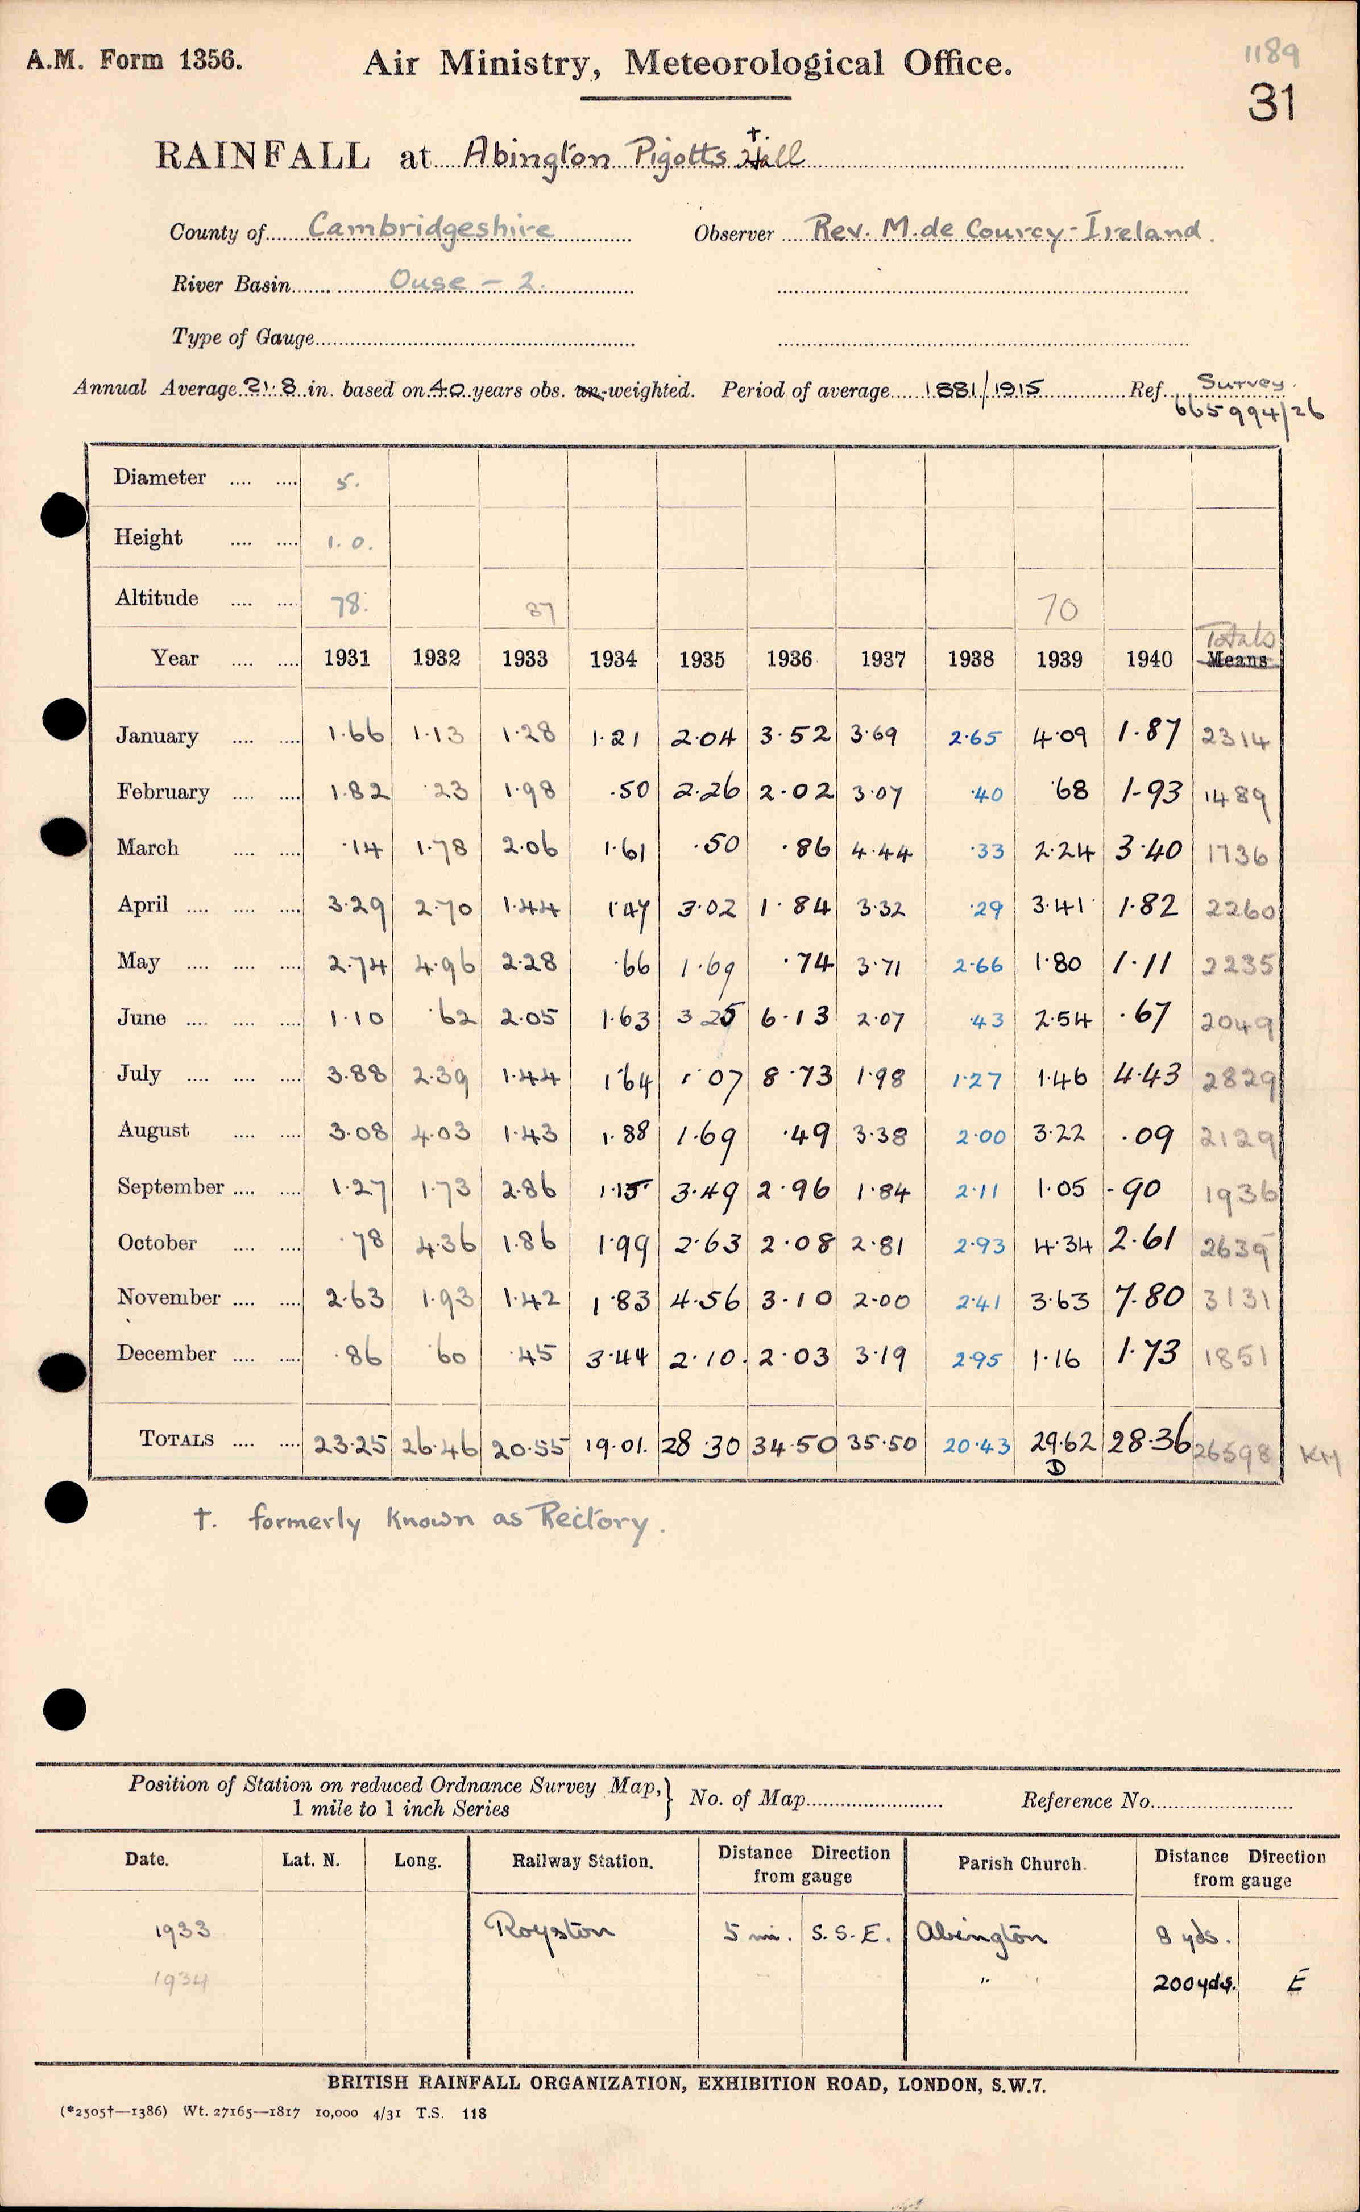 A.M. Form 1356. Air Ministry, Meteorological Office. 1189
31
RAINFALL at Abington Pigotts †. Hall
County of Cambridgeshire Observer Rev. M. de Courcy-Ireland.
River Basin Ouse - 2.
Type of Gauge
Annual Average 21.8 in. based on 40 years obs. un-weighted. Period of average 1881/1915 Ref. Survey
665994/26
Diameter .... .... 5.
Height .... .... 1.0.
Altitude .... .... 78. 87 70
Totals
Year .... .... 1931 1932 1933 1934 1935 1936 1937 1938 1939 1940 Means
January .... .... 1.66 1.13 1.28 1.21 2.04 3.52 3.69 2.65 4.09 1.87 2314
February .... .... 1.82 .23 1.98 .50 2.26 2.02 3.07 .40 .68 1.93 1489
March .... .... .14 1.78 2.06 1.61 .50 .86 4.44 .33 2.24 3.40 1736
April .... .... .... 3.29 2.70 1.44 1.47 3.02 1.84 3.32 .29 3.41 1.82 2260
May .... .... .... 2.74 4.96 2.28 .66 1.69 .74 3.71 2.66 1.80 1.11 2235
June .... .... .... 1.10 .62 2.05 1.63 3.25 6.13 2.07 .43 2.54 .67 2049
July .... .... .... 3.88 2.39 1.44 1.64 1.07 8.73 1.98 1.27 1.46 4.43 2829
August .... .... 3.08 4.03 1.43 1.88 1.69 .49 3.38 2.00 3.22 .09 2129
September .... .... 1.27 1.73 2.86 1.15 3.49 2.96 1.84 2.11 1.05 .90 1936
October .... .... .78 4.36 1.86 1.99 2.63 2.08 2.81 2.93 4.34 2.61 2639
November .... .... 2.63 1.93 1.42 1.83 4.56 3.10 2.00 2.41 3.63 7.80 3131
December .... .... .86 .60 .45 3.44 2.10. 2.03 3.19 2.95 1.16 1.73 1851
TOTALS .... .... 23.25 26.46 20.55 19.01. 28.30 34.50 35.50 20.43 29.62 28.36 26598 KM
D
†. formerly known as Rectory.
Position of Station on reduced Ordnance Survey Map, } No. of Map Reference No.
1 mile to 1 inch Series
Date. Lat. N. Long. Railway Station. Distance Direction from gauge Parish Church. Distance Direction from gauge
1933 Royston 5 mi. S.S.E. Abington 8 yds.
1934 " " 200 yds. E
BRITISH RAINFALL ORGANIZATION, EXHIBITION ROAD, LONDON, S.W.7.
(*2505†—1386) Wt. 27165—1817 10,000 4/31 T.S. 118